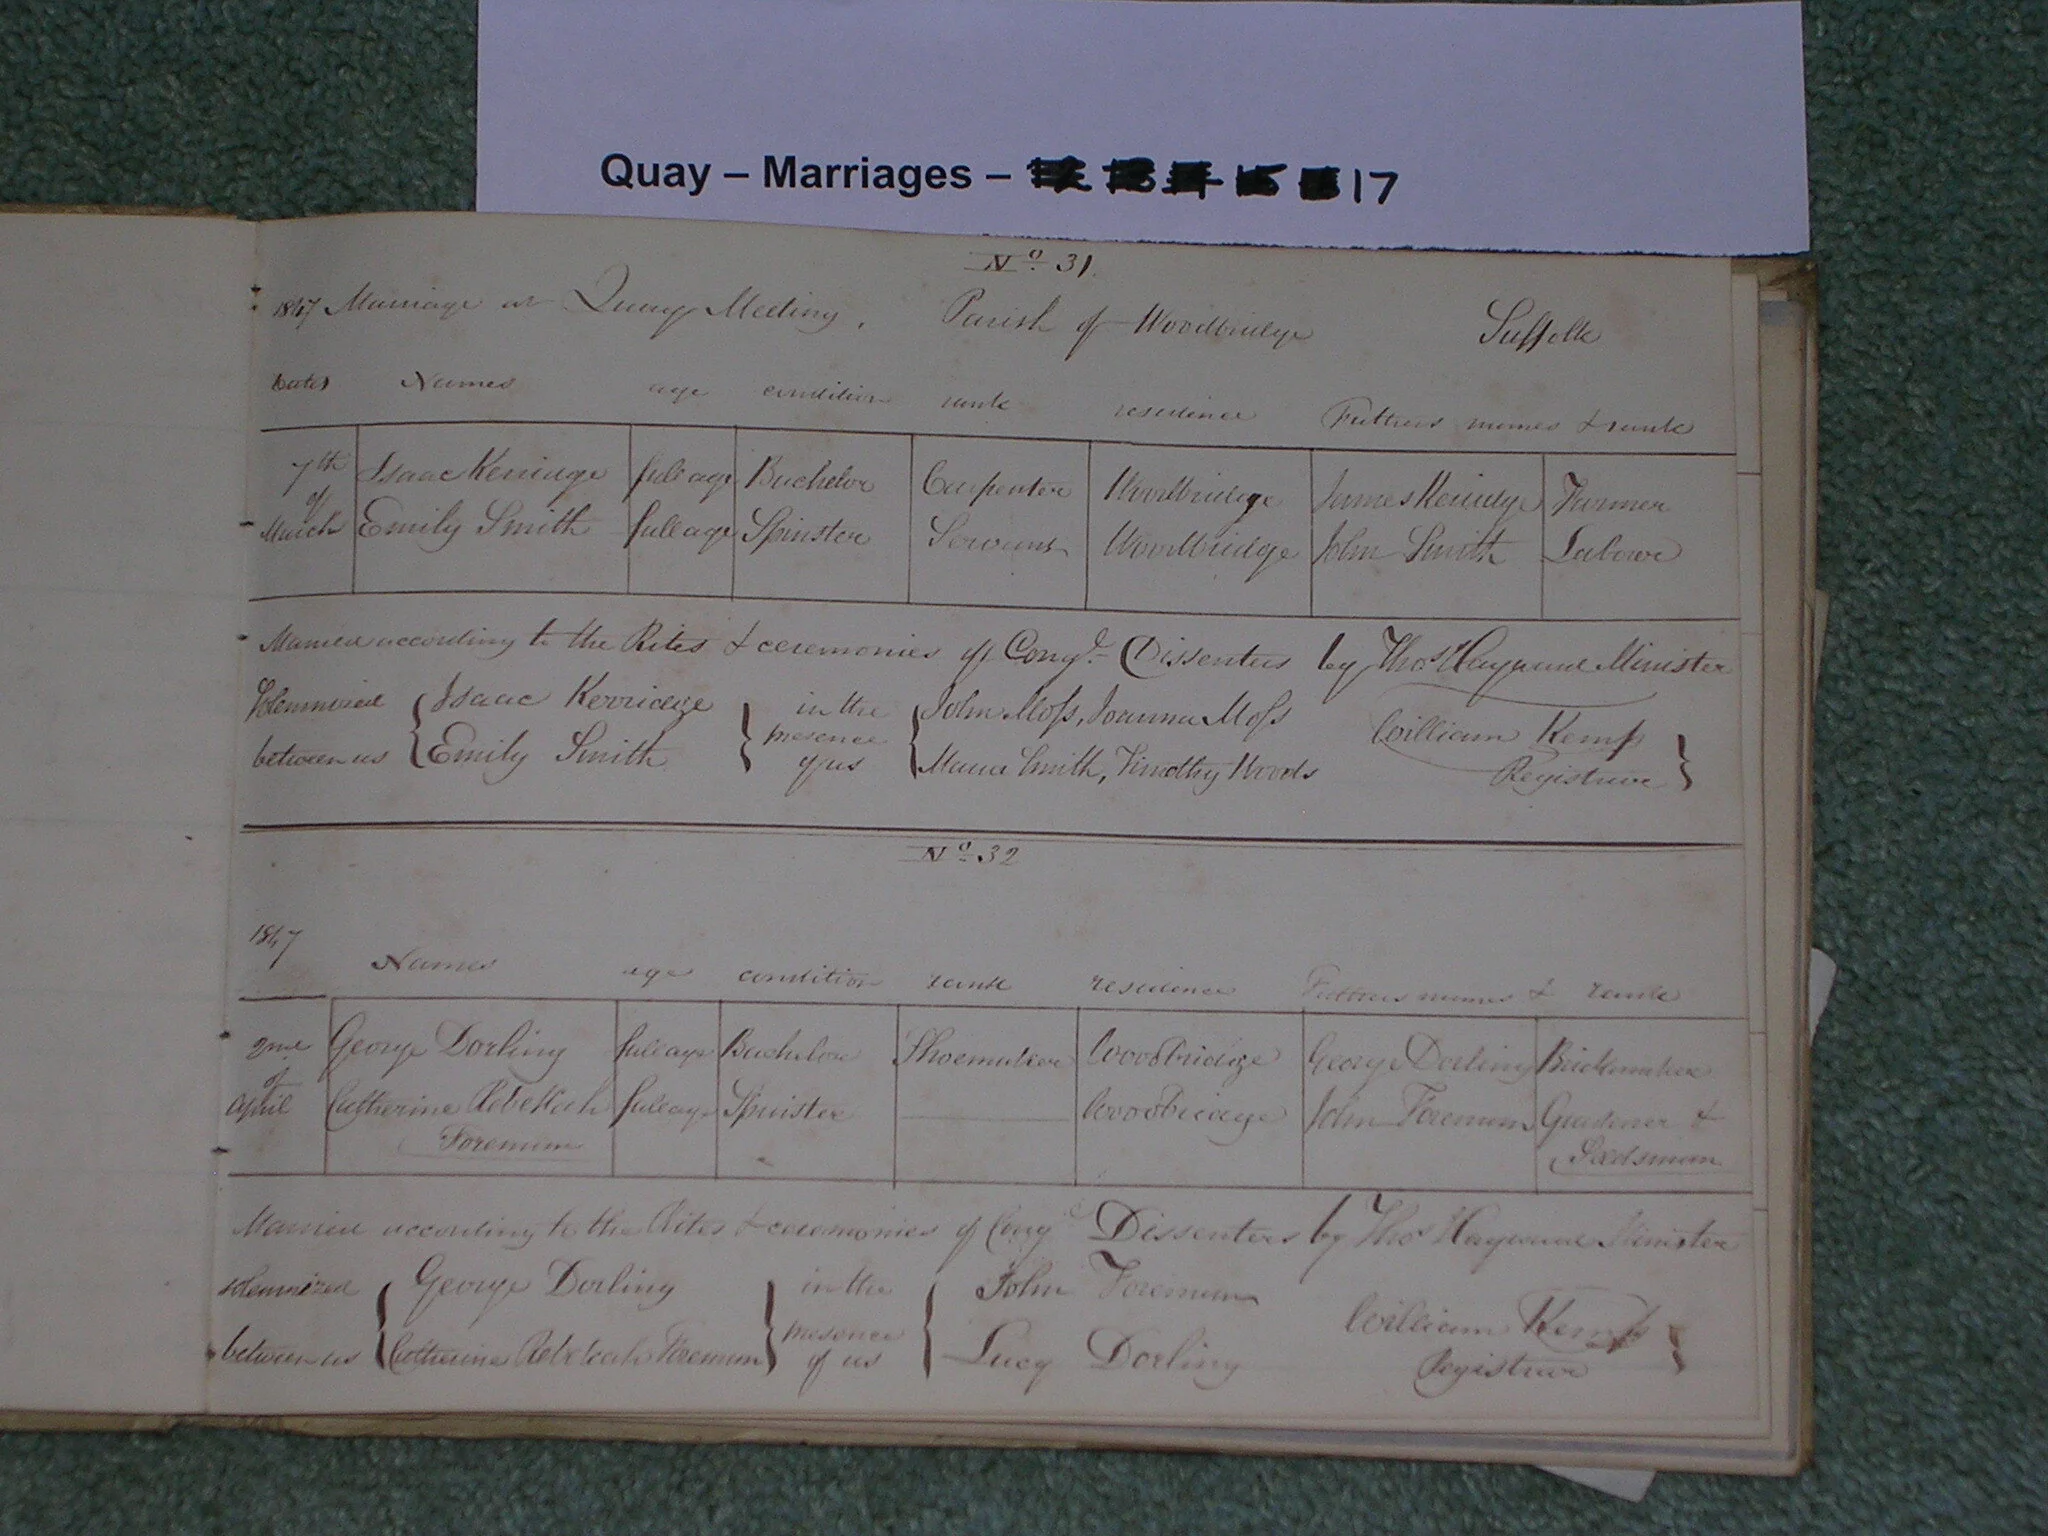 Quay – Marriages – 17
No. 31.
1847 Marriage at Quay Meeting, Parish of Woodbridge Suffolk
Dates Names age condition rank residence Fathers names & rank
7th of March
Isaac Kerridge full age Bachelor Carpenter Woodbridge James Kerridge Farmer
Emily Smith full age Spinster Servant Woodbridge John Smith Labour
Married according to the Rites & ceremonies of Congl. Dissenters by Thos Hayward Minister
Solemnized between us { Isaac Kerridge
Emily Smith }
in the presence of us { John Moss, Joanna Moss
Maria Smith, Timothy Woods
William Kemp
Registrar }
No. 32
1847
Names age condition rank residence Fathers names & rank
2nd of April
George Dorling full age Bachelor Shoemaker Woodbridge George Dorling Brickmaker
Catherine Rebekah Foreman full age Spinster Woodbridge John Foreman Gardener & Seedsman
Married according to the Rites & ceremonies of Congl Dissenters by Thos Hayward Minister
solemnized between us { George Dorling
Catherine Rebekah Foreman }
in the presence of us { John Foreman
Lucy Dorling
William Kemp
Registrar }